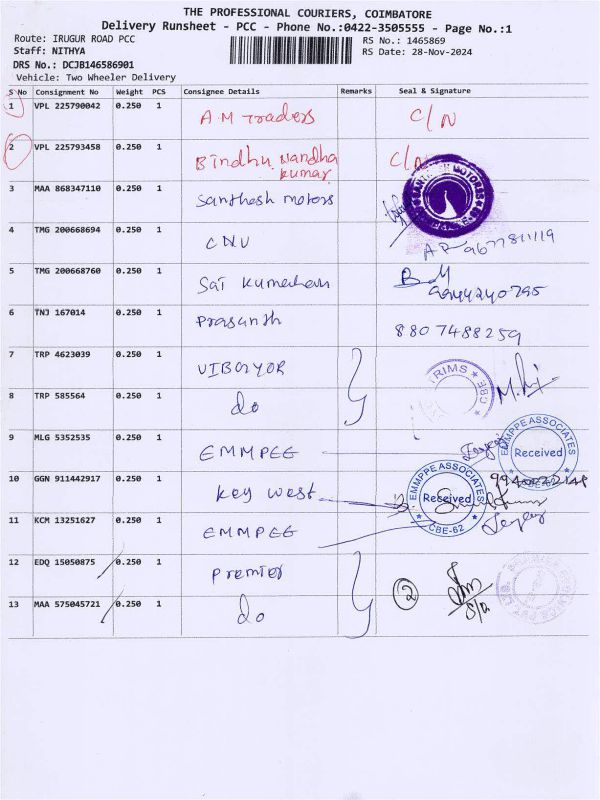 THE PROFESSIONAL COURIERS, COIMBATORE
Delivery Runsheet - PCC - Phone No.:0422-3505555 - Page No.:1
Route: IRUGUR ROAD PCC
RS No.: 1465869
Staff: NITHYA
RS Date: 28-Nov-2024
DRS No.: DCJB146586901
Vehicle: Two Wheeler Delivery
S No Consignment No Weight PCS Consignee Details Remarks Seal & Signature
1 VPL 225790042 0.250 1 A M Traders C/N
2 VPL 225793458 0.250 1 Bindhu Nandha kumar C/N
3 MAA 868347110 0.250 1 Santhosh motors
4 TMG 200668694 0.250 1 CNU 9677811119
5 TMG 200668760 0.250 1 Sai 9944240795
6 TNJ 167014 0.250 1 Prasanth 8807488259
7 TRP 4623039 0.250 1 VIBGYOR
8 TRP 585564 0.250 1 do
9 MLG 5352535 0.250 1 EMMPEE
EMMPPE ASSOCIATES Received
10 GGN 911442917 0.250 1 Key west
EMMPPE ASSOCIATES Received CBE-62
11 KCM 13251627 0.250 1 EMMPEE
12 EDQ 15050875 0.250 1 Premier
13 MAA 575045721 0.250 1 do 2